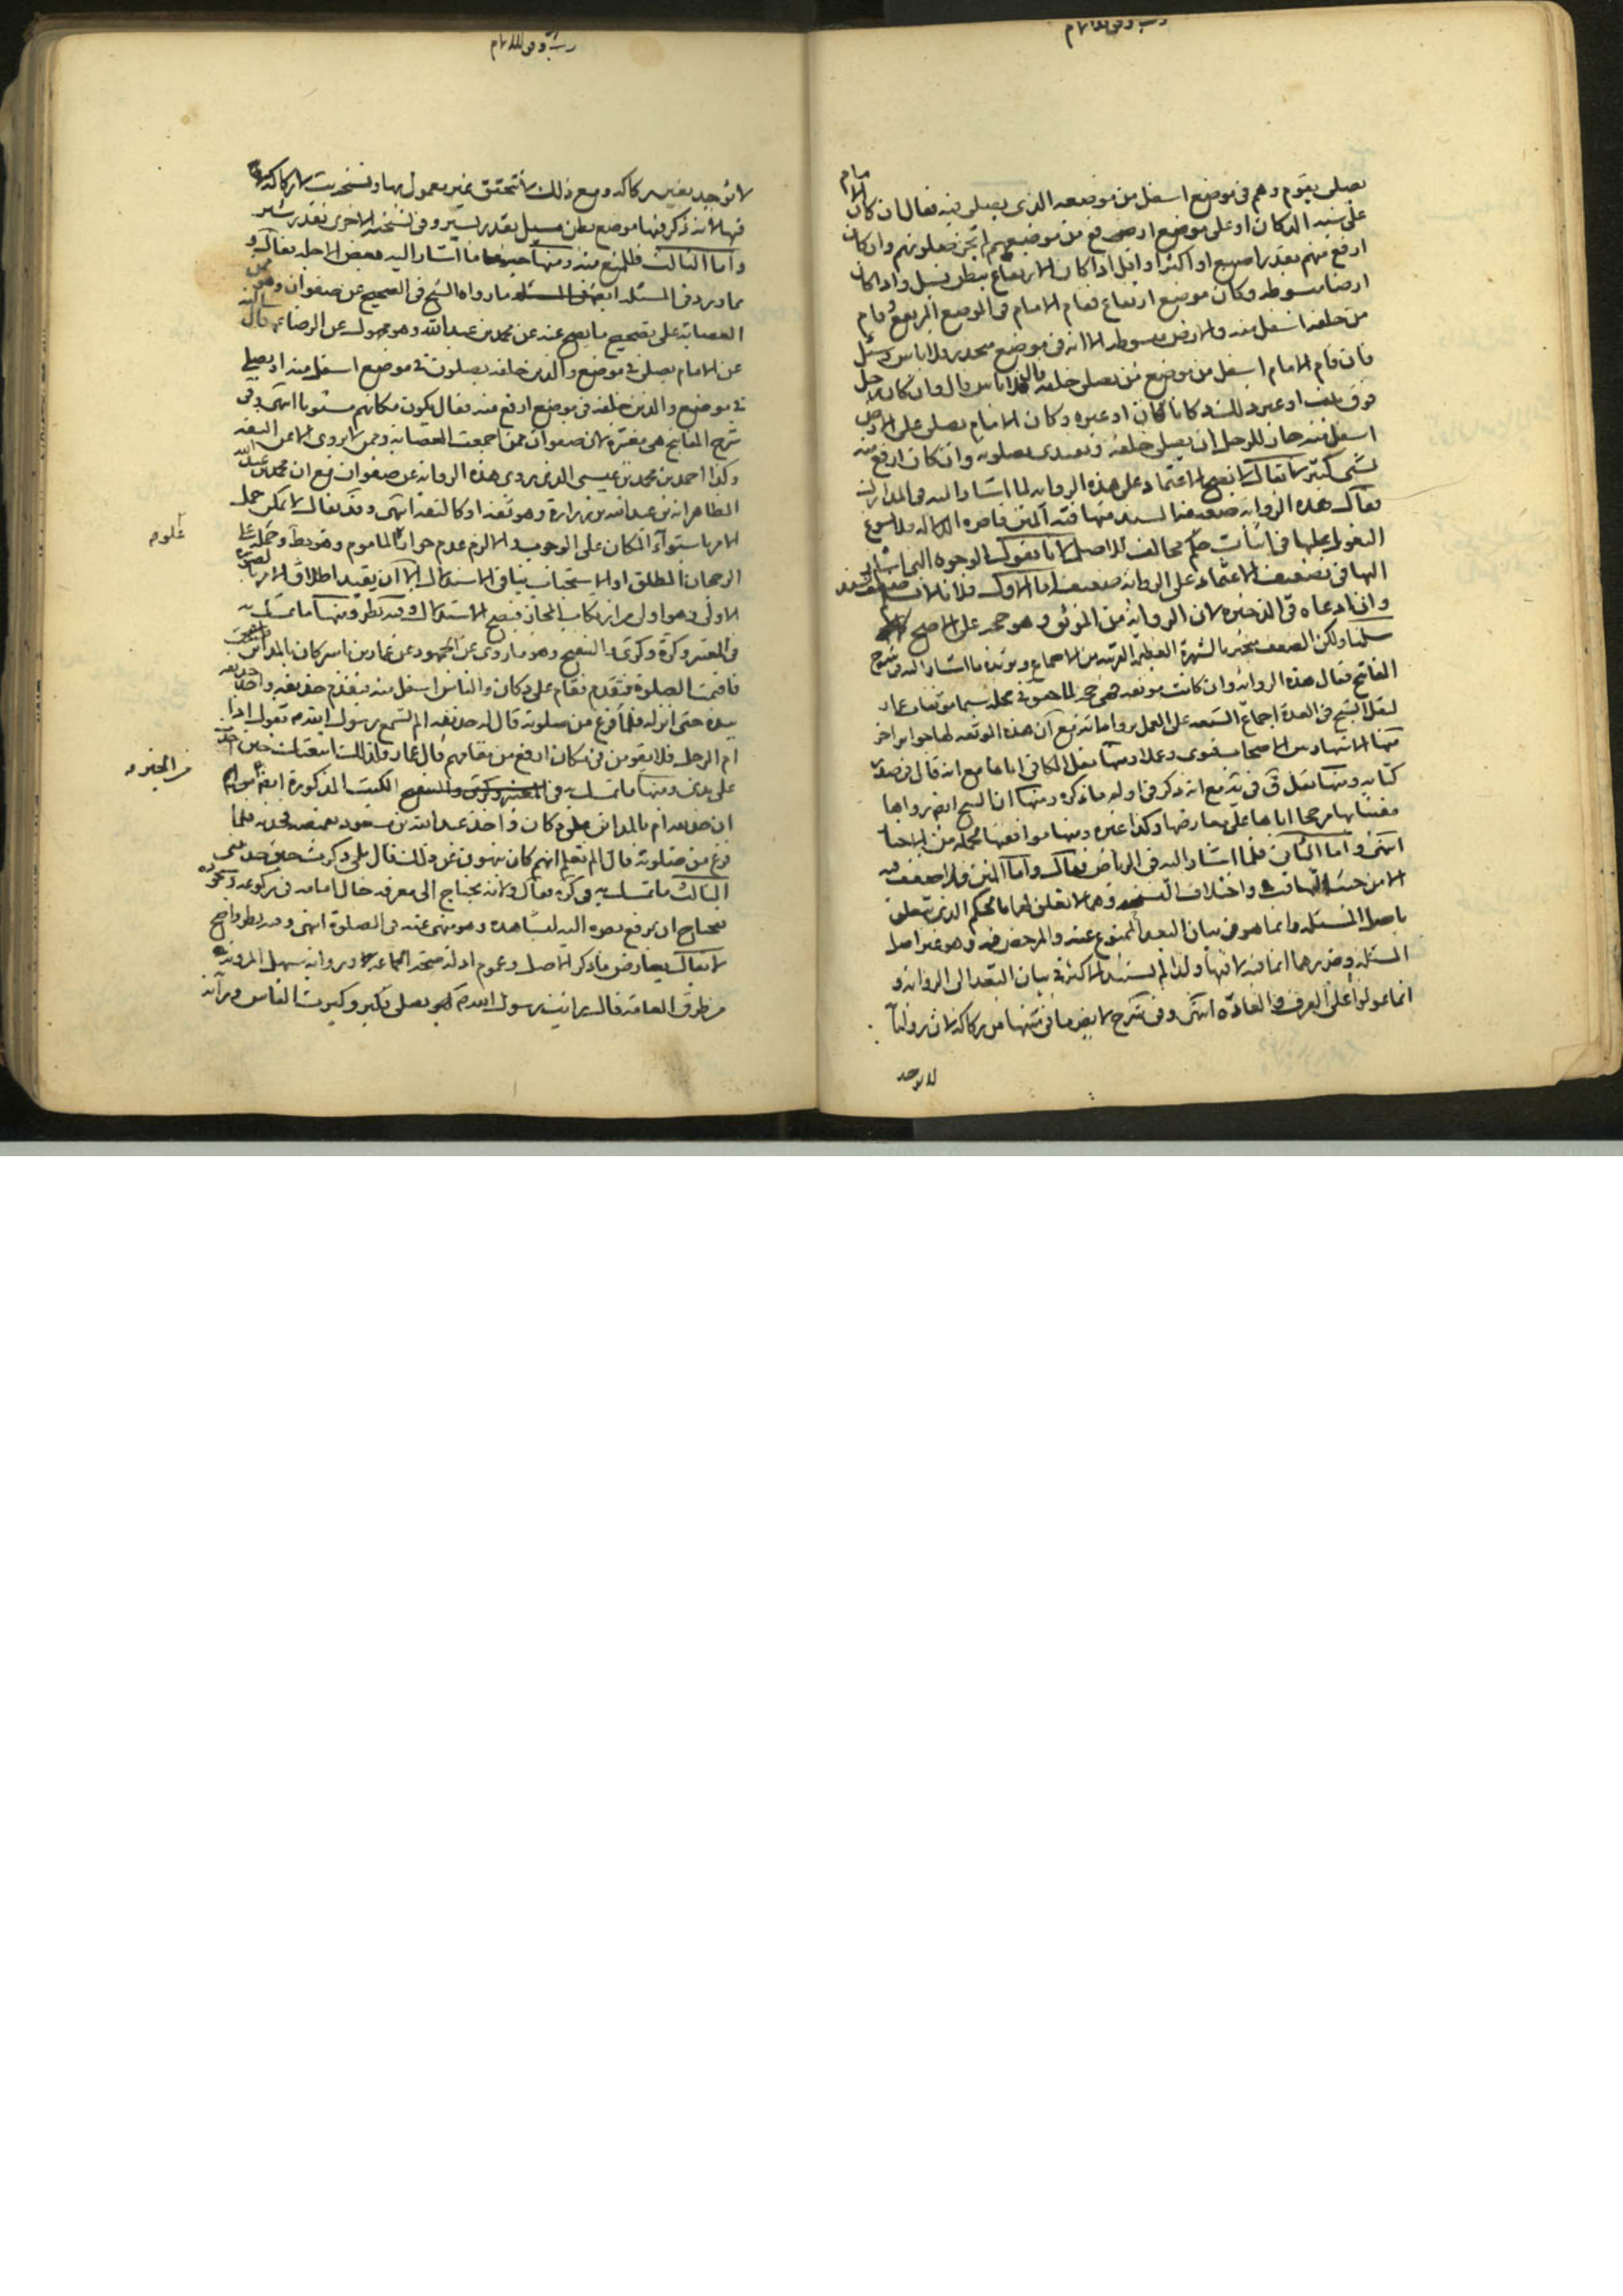 يصلي بقوم وهم في موضع اسفل من موضعه الذي يصلي فيه فقال ان كان الامام
على شبه الدكان او على موضع ارفع من موضعهم لم تجز صلوتهم وان كان
ارفع منهم بقدر اصبع او اكثر او اقل اذا كان الارتفاع ببطن مسيل واذا كان
ارضا مبسوطه وكان موضع ارتفاع فقام الامام في الموضع المرتفع وقام
من خلفه اسفل منه والارض مبسوطه الا انه في موضع منحدر فلا باس وسئل
فان قام الامام اسفل من موضع من يصلي خلفه قال لا باس قال وان كان رجل
فوق بيت او غيره دكانا كان او غيره وكان الامام يصلي على الارض
اسفل منه جاز للرجل ان يصلي خلفه ويقتدي بصلوته وان كان ارفع منه
بشي كثير لا يقال لا يصح الاعتماد على هذه الرواية لما اشار اليه في المدارك
فقال هذه الرواية ضعيفة السند متهافتة المتن قاصرة الدلالة فلا يسوغ
التعويل عليها في اثبات حكم مخالف للاصل لانا نقول الوجوه التي اشار
اليها في تضعيف الاعتماد على الرواية ضعيفة اما الاول فلانا لا نسلم ضعف السند
وان ادعاه في الذخيره لان الرواية من الموثق وهو حجة على الاصح
سلمنا ولكن الضعف منجبر بالشهرة العظيمة القريبة من الاجماع ويؤيد ما اشار اليه في شرح
المفاتيح فقال هذه الرواية وان كانت موثقه فهي حجة لما حقق في محله سيما موثقات عمار
لنقل الشيخ في العدة اجماع الشيعه على العمل برواياته مع ان هذه الموثقه لها جوابر اخر
منها الاشتهار بين الاصحاب فتوى وعملا ومنها نقل الكافي اياها مع انه قال في صدر
كتابه ومنها نقل ق في يه مع انه ذكر في اوله ما ذكره ومنها ان الشيخ ايضا رواها
مفتيا بها مرجحا اياها على معارضها وكذا غيره ومنها موافقتها لجملة من الاخبار
انتهى واما الثاني فلما اشار اليه في الرياض فقال واما المتن فلا ضعف فيه
الا من حيث التهافت واختلاف النسخه وهما لا تعلق لهما بالحكم الذي يتعلق
باصل المسئله وانما هو في بيان البعد الممنوع عنه والمرخص فيه وهو غير اصل
المسئله وضررهما انما فيه لا فيها ولذا لم يستند الاكثر في بيان البعد الى الرواية و
انما عولوا على العرف والعادة انتهى وفي شرح لا يضر ما في متنها من ركاكة لان رواية
لا توجد
لا توجد بغير ركاكه ومع ذلك لا تحقق غير معمول بها ونسخه يب لا ركاكه
فيها لانه ذكر فيها موضع بطن مسيل بقدر يسير وفي نسخته الاخرى بقدر شبر
واما الثالث فللمنع منه ومنها ما اشار اليه بعض الاجله فقال و
مما ورد في المسئله ما رواه الشيخ في الصحيح عن صفوان وهو ممن
العصابة على تصحيح ما يصح عنه عن محمد بن عبدالله وهو مجهول عن الرضا ع قال سالته
عن الامام يصلي في موضع والذين خلفه يصلون في موضع اسفل منه او يصلي
في موضع والذين خلفه في موضع ارفع منه فقال يكون مكانهم مستويا انتهى وفي
شرح المفاتيح هي معتبرة لان صفوان ممن اجمعت العصابه وممن لا يروي الا عن الثقه
وكذا احمد بن محمد بن عيسى الذي يروي هذه الرواية عن صفوان مع ان محمد بن عبدالله
الظاهر انه بن عبدالله بن زرارة وهو ثقة او كالثقة انتهى وقد يقال لا يمكن حمل
الامر باستواء المكان على الوجوب والا لزم عدم جواز علو الماموم وهو بط وحمله على
الرجحان المطلق او الاستحباب ينافي الاستدلال الا ان يقيد اطلاق الامر
الاولى وهو اولى من ارتكاب المجاز فيصح الاستدلال وفيه نظر ومنها ما تمسك به
في المعتبر وكرة وكرى والتنقيح وهو ما روى عن الجمهور عن عمار بن ياسر كان بالمداين
فاقيمت الصلوة فتقدم فقام على دكان والناس اسفل منه فتقدم حذيفه واخذ
بيده حتى انزله فلما فرغ من صلوته قال له حذيفه الم تسمع رسول الله ص يقول اذا
ام الرجل فلا يقومن في مكان ارفع من مقامهم قال عمار فلذلك اتبعتك حين اخذت
على يدي ومنها ما تمسك به في الكتب المذكورة ايضا من
ان حذيفه ام بالمداين على دكان فاخذ عبدالله بن مسعود بقميصه فجذبه فلما
فرغ من صلوته قال الم تعلم انهم كان ينهون عن ذلك قال بلى ذكرت حين جذبتني
الثالث ما تمسك به في كرة فقال ولانه يحتاج الى معرفه حال امامه في ركوعه وسجوده
فيحتاج ان يرفع بصره اليه ليشاهده وهو منهي عنه في الصلوة انتهى وفيه نظر واضح
لا يقال يعارض ما ذكر الاصل وعموم ادلة صحة الجماعه ورواية سهل المروية
من طرق العامه قال رايت رسول الله ص يصلي فكبر وكبرت الناس ورائه
علوم